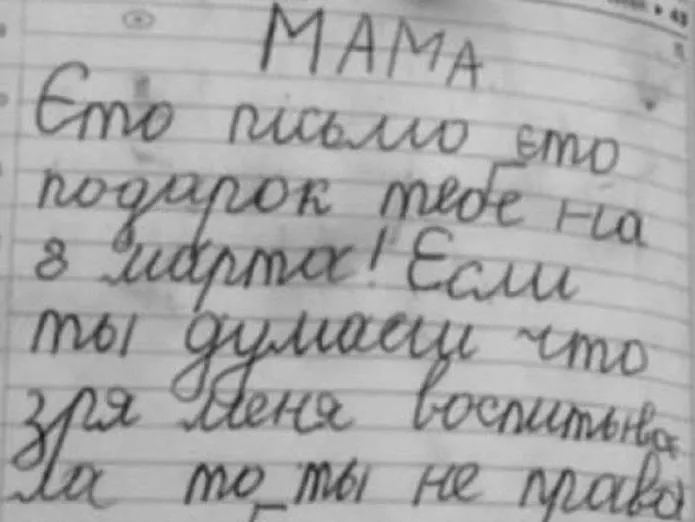 МАМА
Єто письмо єто
подарок тебе на
8 марта! Если
ты думаеш что
зря меня воспитыва
ла то ты не права